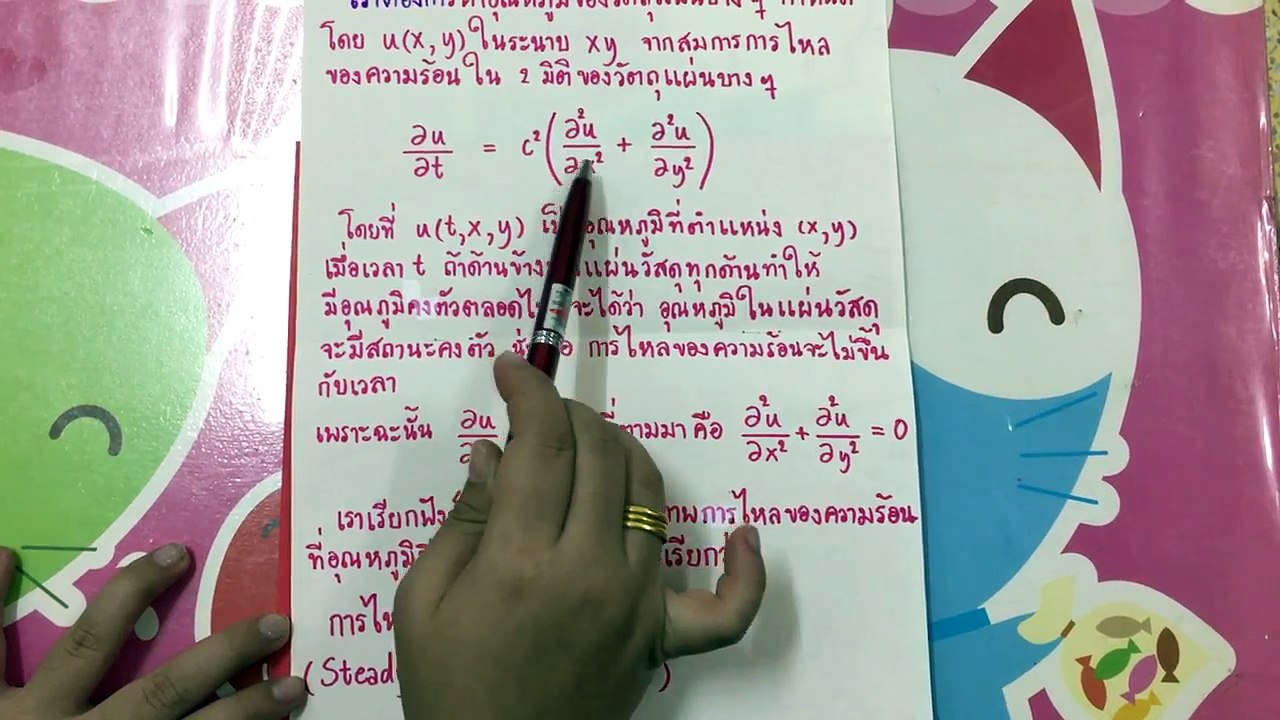 เราต้องการหาอุณหภูมิของวัตถุแผ่นบาง ๆ
โดย u(x, y) ในระนาบ xy จากสมการการไหล
ของความร้อนใน 2 มิติของวัตถุแผ่นบาง ๆ
∂u/∂t = c²(∂²u/∂x² + ∂²u/∂y²)
โดยที่ u(t,x,y) อุณหภูมิที่ตำแหน่ง (x,y)
เมื่อเวลา t ถ้าด้านข้าง แผ่นวัสดุทุกด้านทำให้
มีอุณภูมิคงตัวตลอด จะได้ว่า อุณหภูมิในแผ่นวัสดุ
จะมีสถานะคงตัว การไหลของความร้อนจะไม่ขึ้น
กับเวลา
เพราะฉะนั้น ∂u ที่ตามมา คือ ∂²u/∂x² + ∂²u/∂y² = 0
เราเรียกฟัง การไหลของความร้อน
ที่อุณหภูมิ เรียก
การ
(Stead )